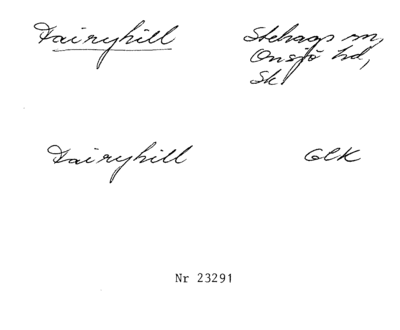 Dairyhill
Stehags sn,
Onsjö hd,
Sk
Dairyhill
GCK
Nr 23291